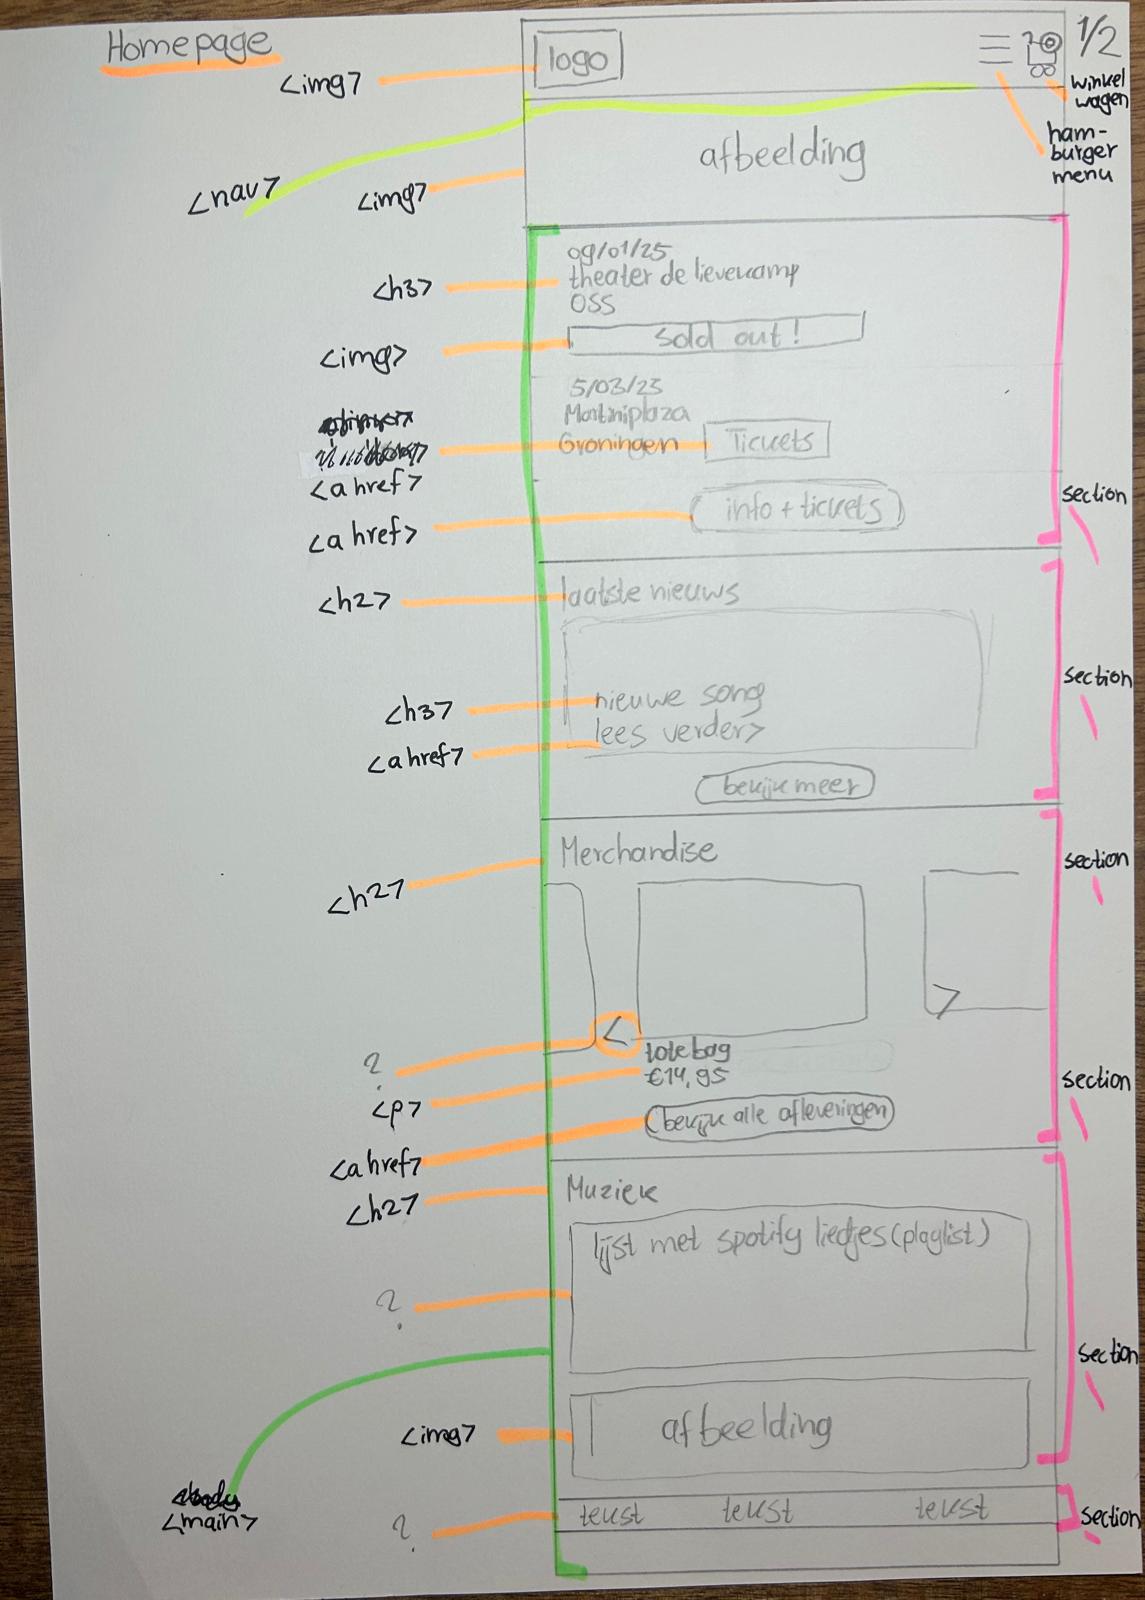 Homepage
1/2
<img>
logo
winkel
wagen
ham-
burger
menu
<nav>
<img>
afbeelding
<h3>
09/01/25
theater de lievekamp
OSS
<img>
sold out!
5/03/25
Martiniplaza
Groningen
Tickets
<a href>
section
<a href>
info + tickets
<h2>
laatste nieuws
section
<h3>
nieuwe song
<a href>
lees verder>
bekijk meer
<h2>
Merchandise
section
<
>
?
tote bag
<p>
€14,95
section
<a href>
bekijk alle afleveringen
<h2>
Muziek
lijst met spotify liedjes (playlist)
?
section
<img>
afbeelding
<body
<main>
?
tekst
tekst
tekst
section